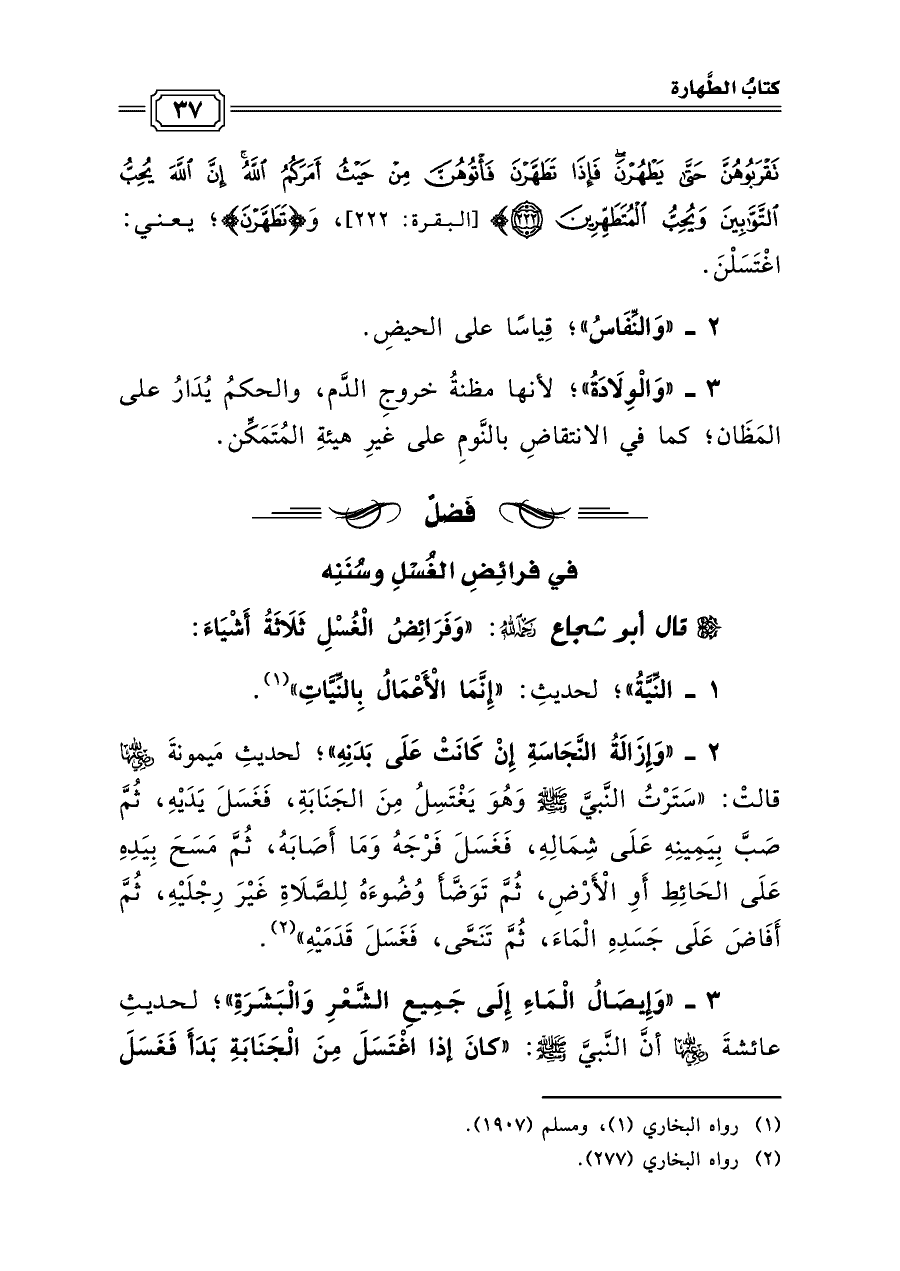 كتابُ الطَّهارة
٣٧
تَقْرَبُوهُنَّ حَتَّىٰ يَطْهُرْنَۖ فَإِذَا تَطَهَّرْنَ فَأْتُوهُنَّ مِنْ حَيْثُ أَمَرَكُمُ ٱللَّهُۚ إِنَّ ٱللَّهَ يُحِبُّ
ٱلتَّوَّٰبِينَ وَيُحِبُّ ٱلْمُتَطَهِّرِينَ ﴿٢٢٢﴾ [البقرة: ٢٢٢]، وَ﴿تَطَهَّرْنَ﴾؛ يعني:
اغْتَسَلْنَ.
٢ ـ «وَالنِّفَاسُ»؛ قِياسًا على الحيضِ.
٣ ـ «وَالْوِلَادَةُ»؛ لأنها مظنةُ خروجِ الدَّم، والحكمُ يُدَارُ على
المَظَان؛ كما في الانتقاضِ بالنَّومِ على غيرِ هيئةِ المُتَمَكِّن.
فَصْلٌ
في فرائِضِ الغُسْلِ وسُنَنِه
قال أبو شجاع رَحِمَهُ اللَّهُ: «وَفَرَائِضُ الْغُسْلِ ثَلَاثَةُ أَشْيَاءَ:
١ ـ النِّيَّةُ»؛ لحديثِ: «إِنَّمَا الْأَعْمَالُ بِالنِّيَّاتِ»(١).
٢ ـ «وَإِزَالَةُ النَّجَاسَةِ إِنْ كَانَتْ عَلَى بَدَنِهِ»؛ لحديثِ مَيمونةَ رَضِيَ اللَّهُ عَنْهَا
قالتْ: «سَتَرْتُ النَّبيَّ ﷺ وَهُوَ يَغْتَسِلُ مِنَ الجَنَابَةِ، فَغَسَلَ يَدَيْهِ، ثُمَّ
صَبَّ بِيَمِينِهِ عَلَى شِمَالِهِ، فَغَسَلَ فَرْجَهُ وَمَا أَصَابَهُ، ثُمَّ مَسَحَ بِيَدِهِ
عَلَى الحَائِطِ أَوِ الْأَرْضِ، ثُمَّ تَوَضَّأَ وُضُوءَهُ لِلصَّلَاةِ غَيْرَ رِجْلَيْهِ، ثُمَّ
أَفَاضَ عَلَى جَسَدِهِ الْمَاءَ، ثُمَّ تَنَحَّى، فَغَسَلَ قَدَمَيْهِ»(٢).
٣ ـ «وَإِيصَالُ الْمَاءِ إِلَى جَمِيعِ الشَّعْرِ وَالْبَشَرَةِ»؛ لحديثِ
عائشةَ رَضِيَ اللَّهُ عَنْهَا أنَّ النَّبيَّ ﷺ: «كانَ إذا اغْتَسَلَ مِنَ الْجَنَابَةِ بَدَأَ فَغَسَلَ
(١) رواه البخاري (١)، ومسلم (١٩٠٧).
(٢) رواه البخاري (٢٧٧).